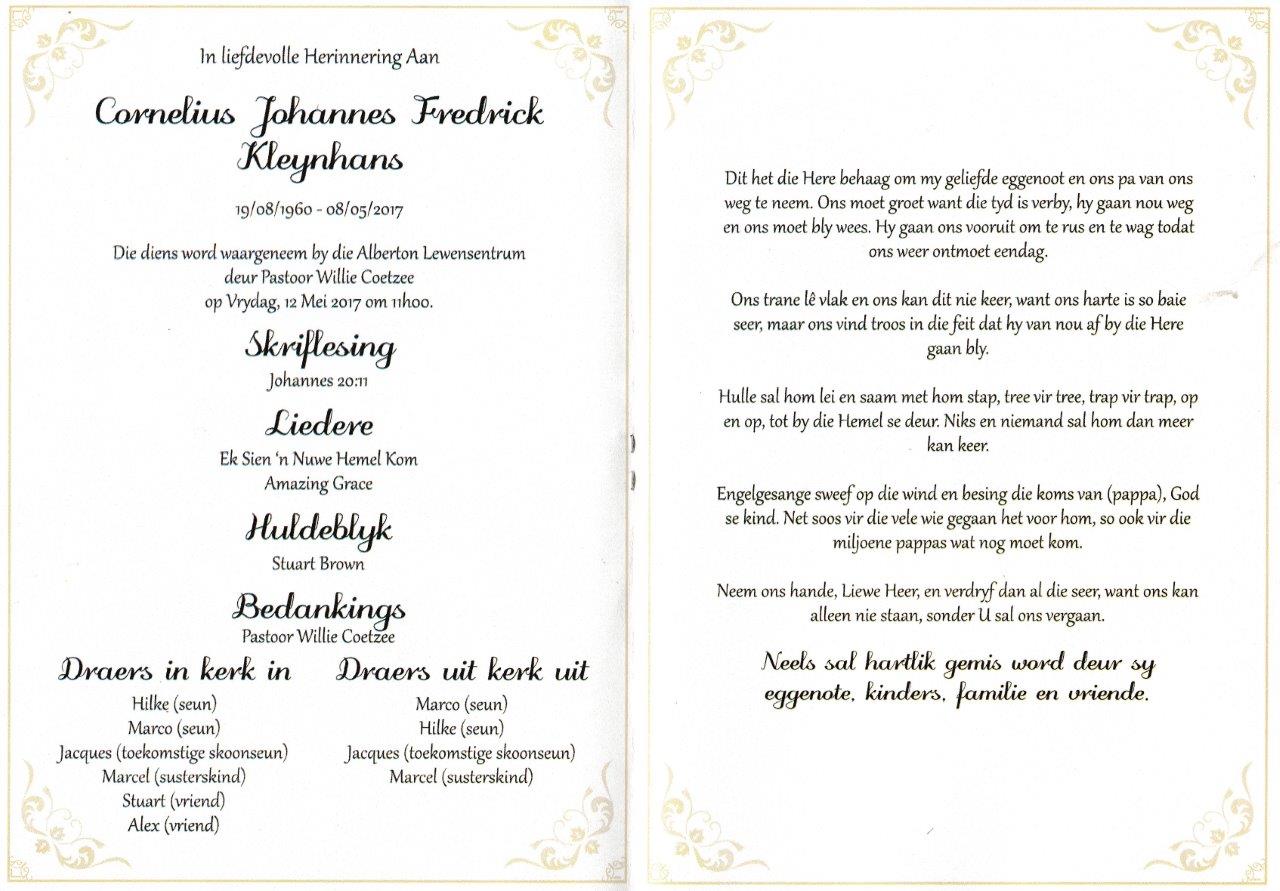 In liefdevolle Herinnering Aan
Cornelius Johannes Fredrick
Kleynhans
19/08/1960 - 08/05/2017
Die diens word waargeneem by die Alberton Lewensentrum
deur Pastoor Willie Coetzee
op Vrydag, 12 Mei 2017 om 11h00.
Skriflesing
Johannes 20:11
Liedere
Ek Sien 'n Nuwe Hemel Kom
Amazing Grace
Huldeblyk
Stuart Brown
Bedankings
Pastoor Willie Coetzee
Draers in kerk in
Hilke (seun)
Marco (seun)
Jacques (toekomstige skoonseun)
Marcel (susterskind)
Stuart (vriend)
Alex (vriend)
Draers uit kerk uit
Marco (seun)
Hilke (seun)
Jacques (toekomstige skoonseun)
Marcel (susterskind)
Dit het die Here behaag om my geliefde eggenoot en ons pa van ons
weg te neem. Ons moet groet want die tyd is verby, hy gaan nou weg
en ons moet bly wees. Hy gaan ons vooruit om te rus en te wag todat
ons weer ontmoet eendag.
Ons trane lê vlak en ons kan dit nie keer, want ons harte is so baie
seer, maar ons vind troos in die feit dat hy van nou af by die Here
gaan bly.
Hulle sal hom lei en saam met hom stap, tree vir tree, trap vir trap, op
en op, tot by die Hemel se deur. Niks en niemand sal hom dan meer
kan keer.
Engelgesange sweef op die wind en besing die koms van (pappa), God
se kind. Net soos vir die vele wie gegaan het voor hom, so ook vir die
miljoene pappas wat nog moet kom.
Neem ons hande, Liewe Heer, en verdryf dan al die seer, want ons kan
alleen nie staan, sonder U sal ons vergaan.
Neels sal hartlik gemis word deur sy
eggenote, kinders, familie en vriende.